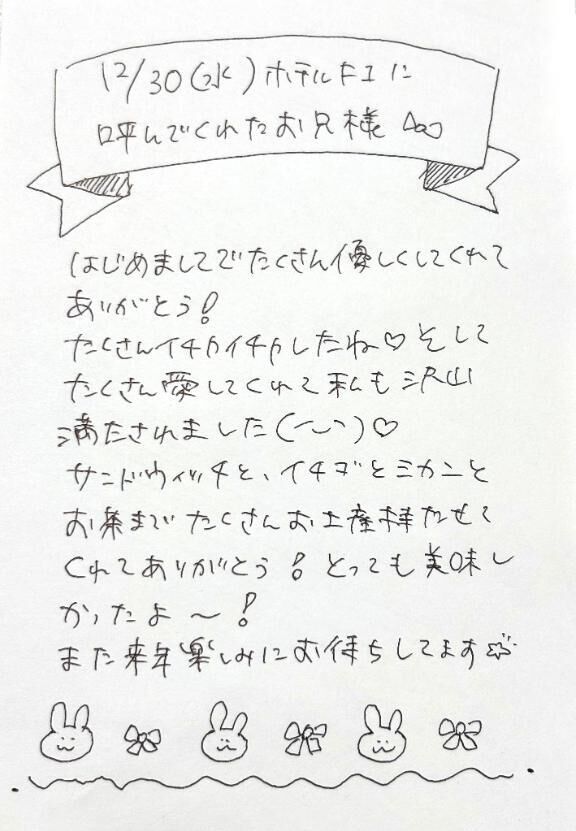 12/30(水)ホテルFIに
呼んでくれたお兄様
はじめましてでたくさん優しくしてくれて
ありがとう!
たくさんイチャイチャしたね♡そして
たくさん愛してくれて私も沢山
満たされました(^‿^)♡
サンドウィッチと、イチゴとミカンと
お茶までたくさんお土産持たせて
くれてありがとう!とっても美味し
かったよ〜!
また来年楽しみにお待ちしてます